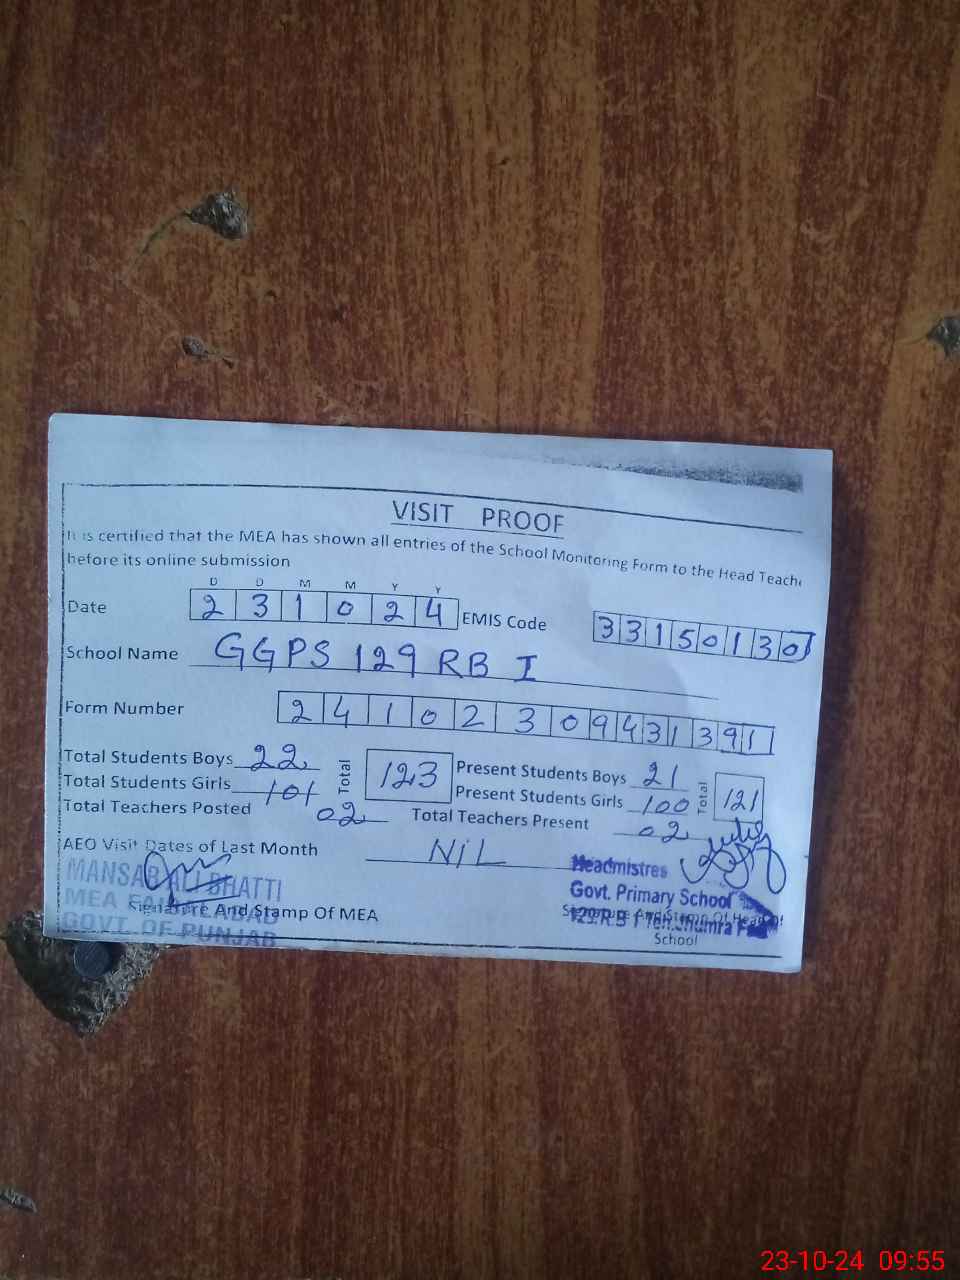 VISIT PROOF
It is certified that the MEA has shown all entries of the School Monitoring Form to the Head Teache
before its online submission
D D M M Y Y
Date 2 3 1 0 2 4 EMIS Code 3 3 1 5 0 1 3 0
School Name GGPS 129 RB I
Form Number 2 4 1 0 2 3 0 9 4 3 1 3 9 1
Total Students Boys 22 Total 123 Present Students Boys 21 Total 121
Total Students Girls 101 Present Students Girls 100
Total Teachers Posted 02 Total Teachers Present 02
AEO Visit Dates of Last Month NiL
MANSAB ALI BHATTI
MEA FAISALABAD
GOVT. OF PUNJAB
Signature And Stamp Of MEA
Headmistres
Govt. Primary School
129.R.B 1 Teh.Jhumra
Signature And Stamp Of Head Of
School
23-10-24 09:55